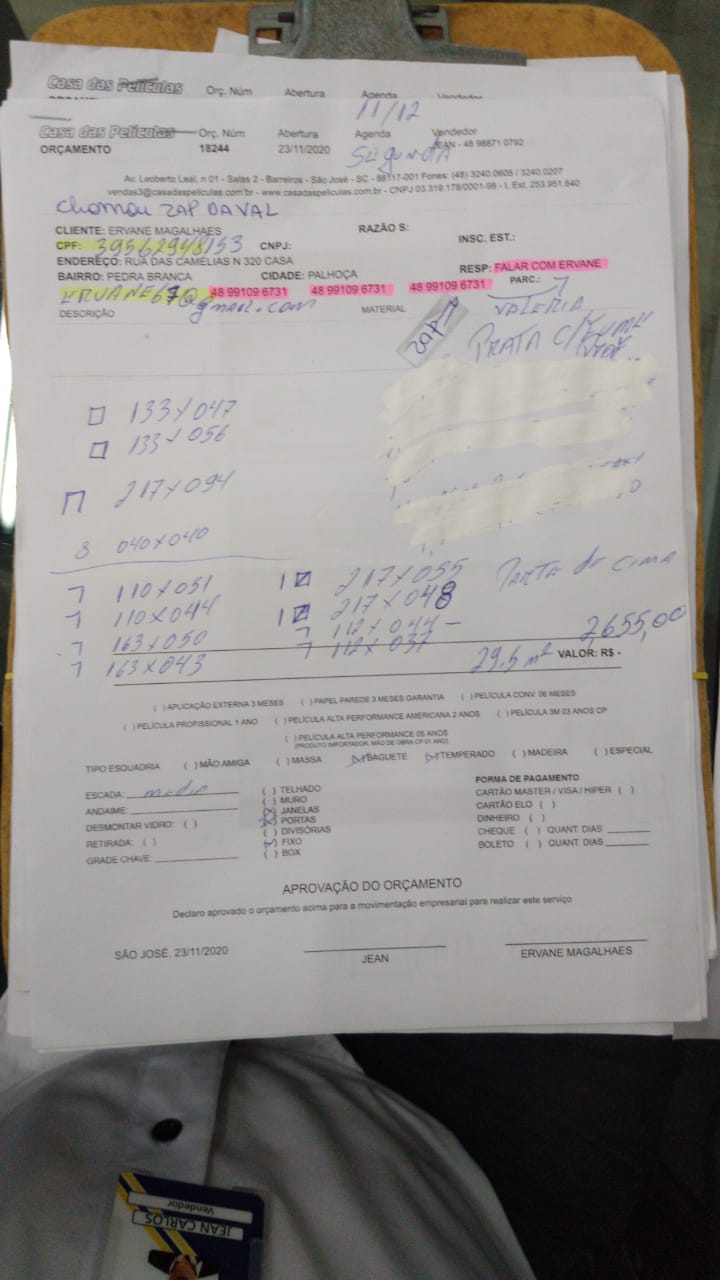 Casa das Películas Orç. Núm Abertura Agenda Vendedor
11/12
Casa das Películas Orç. Núm Abertura Agenda Vendedor
ORÇAMENTO 18244 23/11/2020 SEGUNDA JEAN - 48 98871 0792
Av. Leoberto Leal, n 01 - Salas 2 - Barreiros - São José - SC - 88117-001 Fones: (48) 3240.0606 / 3240.0207
vendas3@casadaspeliculas.com.br - www.casadaspeliculas.com.br - CNPJ 03.319.178/0001-98 - I. Est. 253.951.640
chamou ZAP DAVAL
CLIENTE: ERVANE MAGALHAES RAZÃO S:
CPF: 39562948153 CNPJ: INSC. EST.:
ENDEREÇO: RUA DAS CAMÉLIAS N 320 CASA
BAIRRO: PEDRA BRANCA CIDADE: PALHOÇA RESP: FALAR COM ERVANE
ERVANE67@gmail.com 48 99109 6731 48 99109 6731 48 99109 6731 PARC.:
DESCRIÇÃO MATERIAL VALERIA
PRATA C/
133X047
133X056
217X094
8 040X040
7 110X051 1 217X055 PARTE de CIMA
7 110X044 1 217X048
7 163X050 7 112X044 - 2,655,00
7 163X043 7 112X037 29.5 m² VALOR: R$ -
( ) APLICAÇÃO EXTERNA 3 MESES ( ) PAPEL PAREDE 3 MESES GARANTIA ( ) PELÍCULA CONV. 06 MESES
( ) PELÍCULA PROFISSIONAL 1 ANO ( ) PELÍCULA ALTA PERFORMANCE AMERICANA 2 ANOS ( ) PELÍCULA 3M 03 ANOS CP
( ) PELÍCULA ALTA PERFORMANCE 05 ANOS
(PRODUTO IMPORTADOR, MÃO DE OBRA CP 01 ANO)
TIPO ESQUADRIA ( ) MÃO AMIGA ( ) MASSA (X) BAGUETE (X) TEMPERADO ( ) MADEIRA ( ) ESPECIAL
ESCADA: media ( ) TELHADO FORMA DE PAGAMENTO
ANDAIME: ( ) MURO CARTÃO MASTER / VISA / HIPER ( )
(X) JANELAS CARTÃO ELO ( )
DESMONTAR VIDRO: ( ) (X) PORTAS DINHEIRO ( )
RETIRADA: ( ) ( ) DIVISÓRIAS CHEQUE ( ) QUANT. DIAS
GRADE CHAVE: (X) FIXO BOLETO ( ) QUANT. DIAS
( ) BOX
APROVAÇÃO DO ORÇAMENTO
Declaro aprovado o orçamento acima para a movimentação empresarial para realizar este serviço
SÃO JOSÉ, 23/11/2020 JEAN ERVANE MAGALHAES
Vendedor
JEAN CARLOS